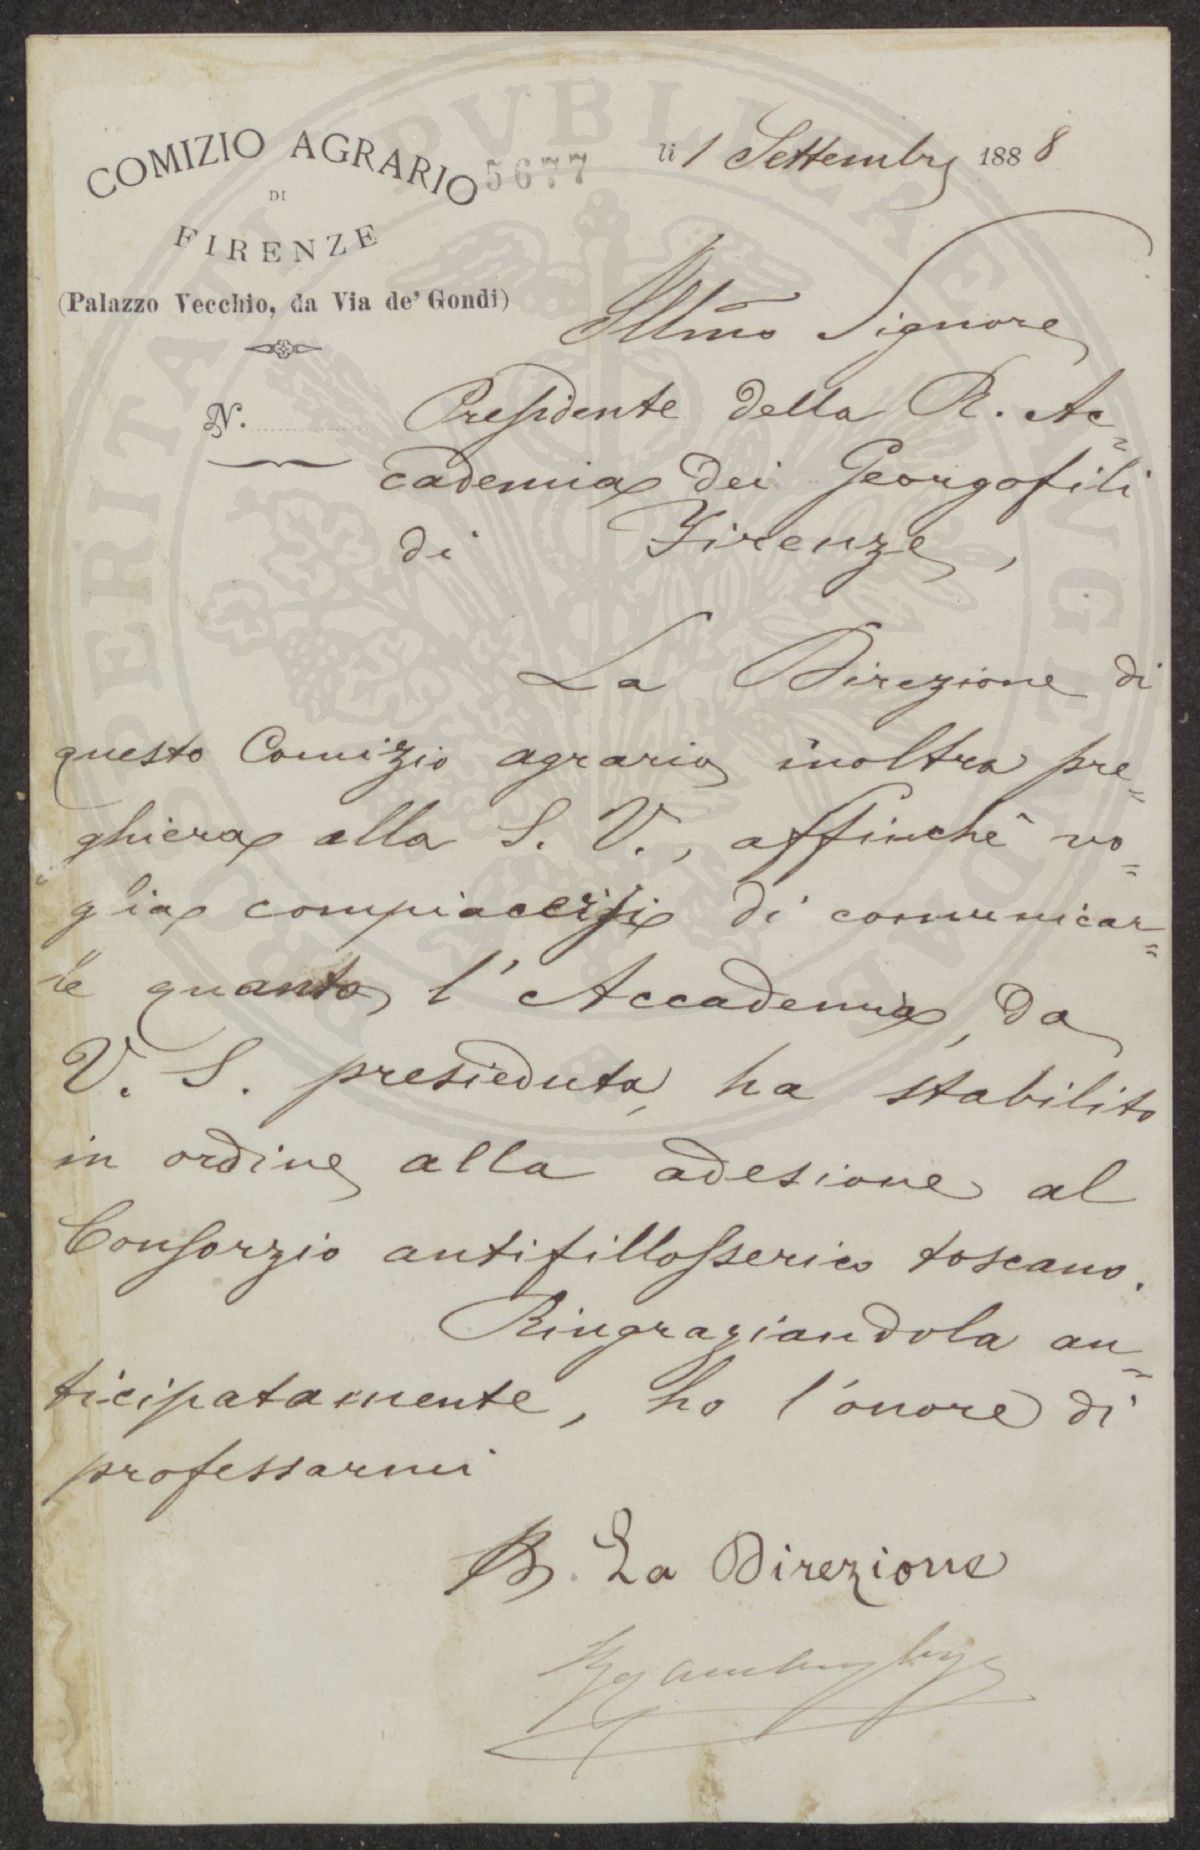 COMIZIO AGRARIO
DI
FIRENZE
(Palazzo Vecchio, da Via de' Gondi)
N.
5677
li 1 Settembre 1888
Illmo Signore
Presidente della R. Ac=
cademia dei Georgofili
di Firenze,
La Direzione di
questo Comizio agrario inoltra pre=
ghiera alla S. V., affinchè vo=
glia compiacersi di comunicar=
le quanto l'Accademia, da
V. S. presieduta, ha stabilito
in ordine alla adesione al
Consorzio antifillosserico toscano.
Ringraziandola an=
ticipatamente, ho l'onore di
professarmi
La Direzione